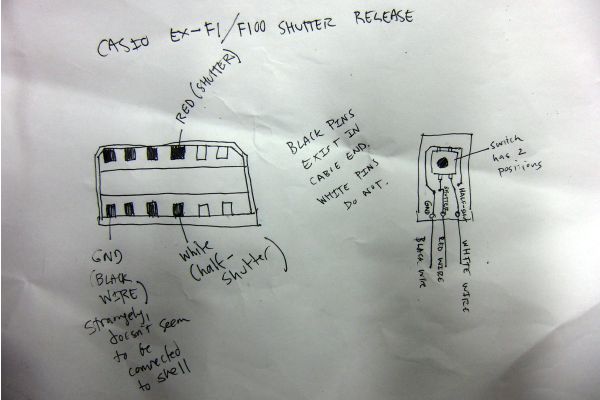 CASIO EX-F1/F100 SHUTTER RELEASE
RED (SHUTTER)
BLACK PINS
EXIST IN
CABLE END.
WHITE PINS
DO NOT.
switch
has 2
positions
GND
(BLACK
WIRE)
Strangely,
doesn't seem
to be
connected
to shell
white
(half-
shutter)
GND
SHUTTER
BLACK WIRE
RED WIRE
WHITE WIRE